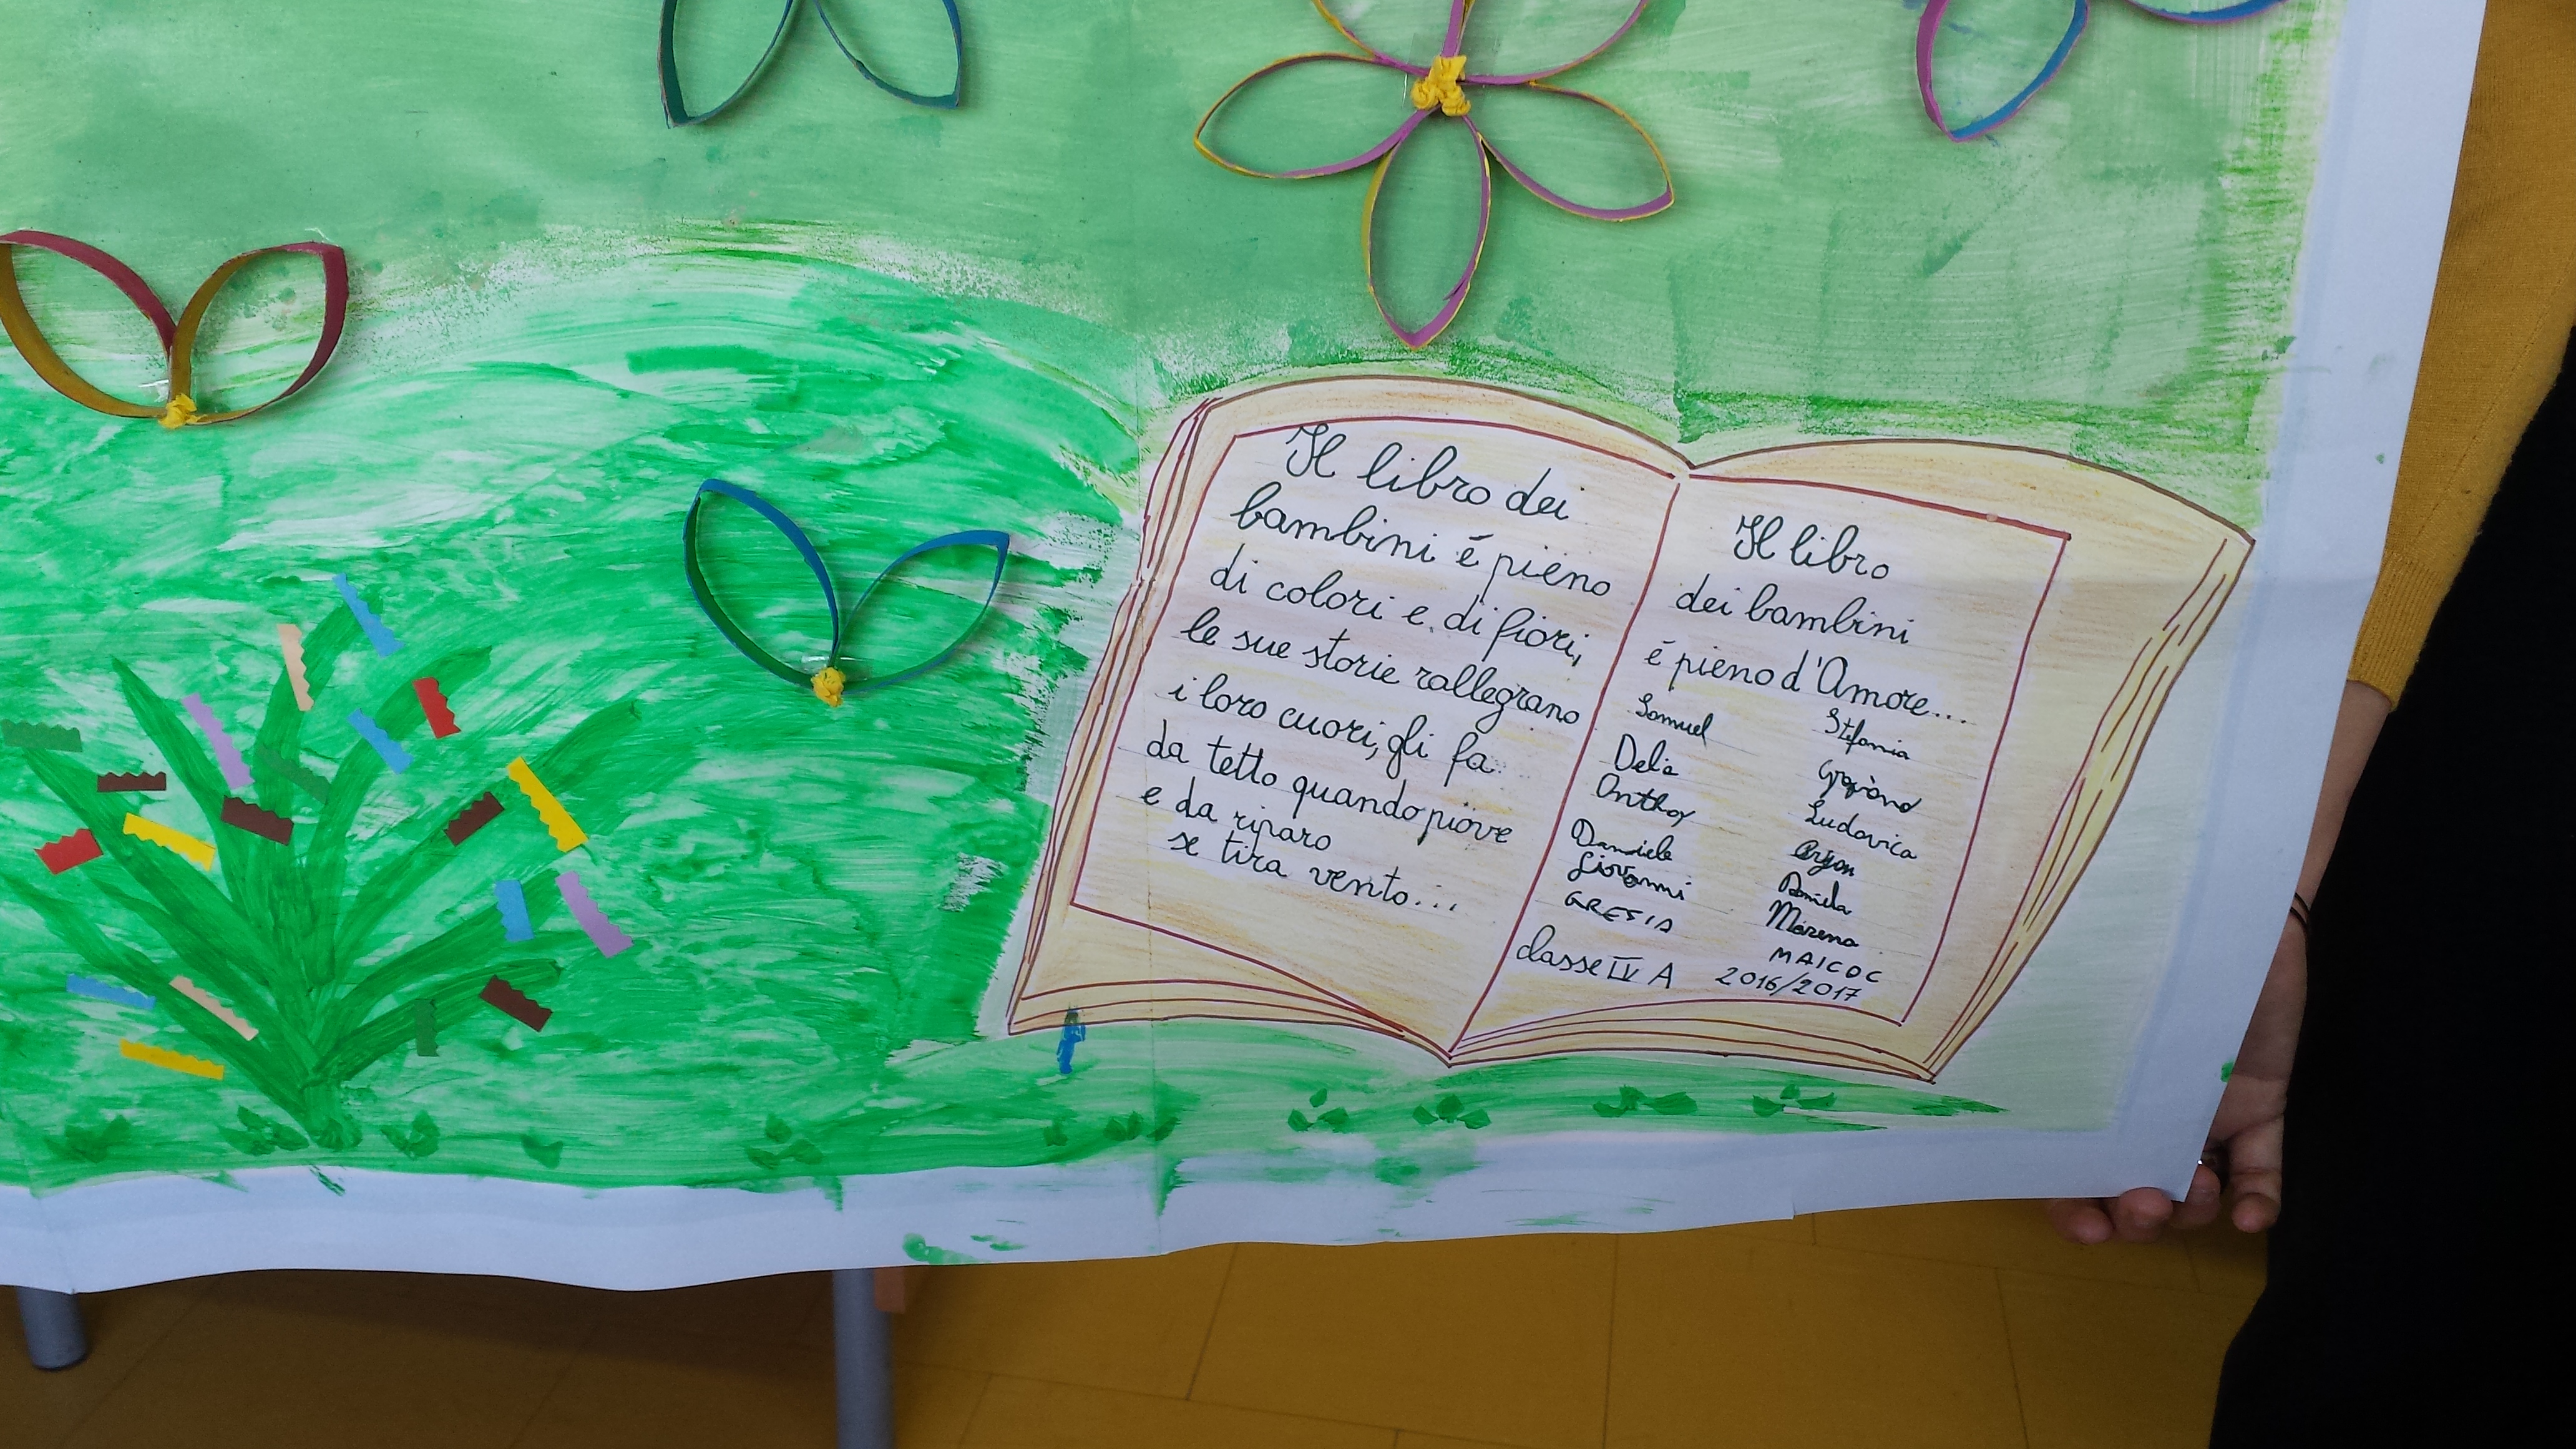 Il libro dei
bambini é pieno
di colori e di fiori,
le sue storie rallegrano
i loro cuori, gli fa
da tetto quando piove
e da riparo
se tira vento...
Il libro
dei bambini
é pieno d'Amore...
Samuel
Delia
Anthoy
Daniele
Giovanni
GRESIA
Stefania
Ludovica
Daniela
Morena
MAICOC
classe IV A 2016/2017